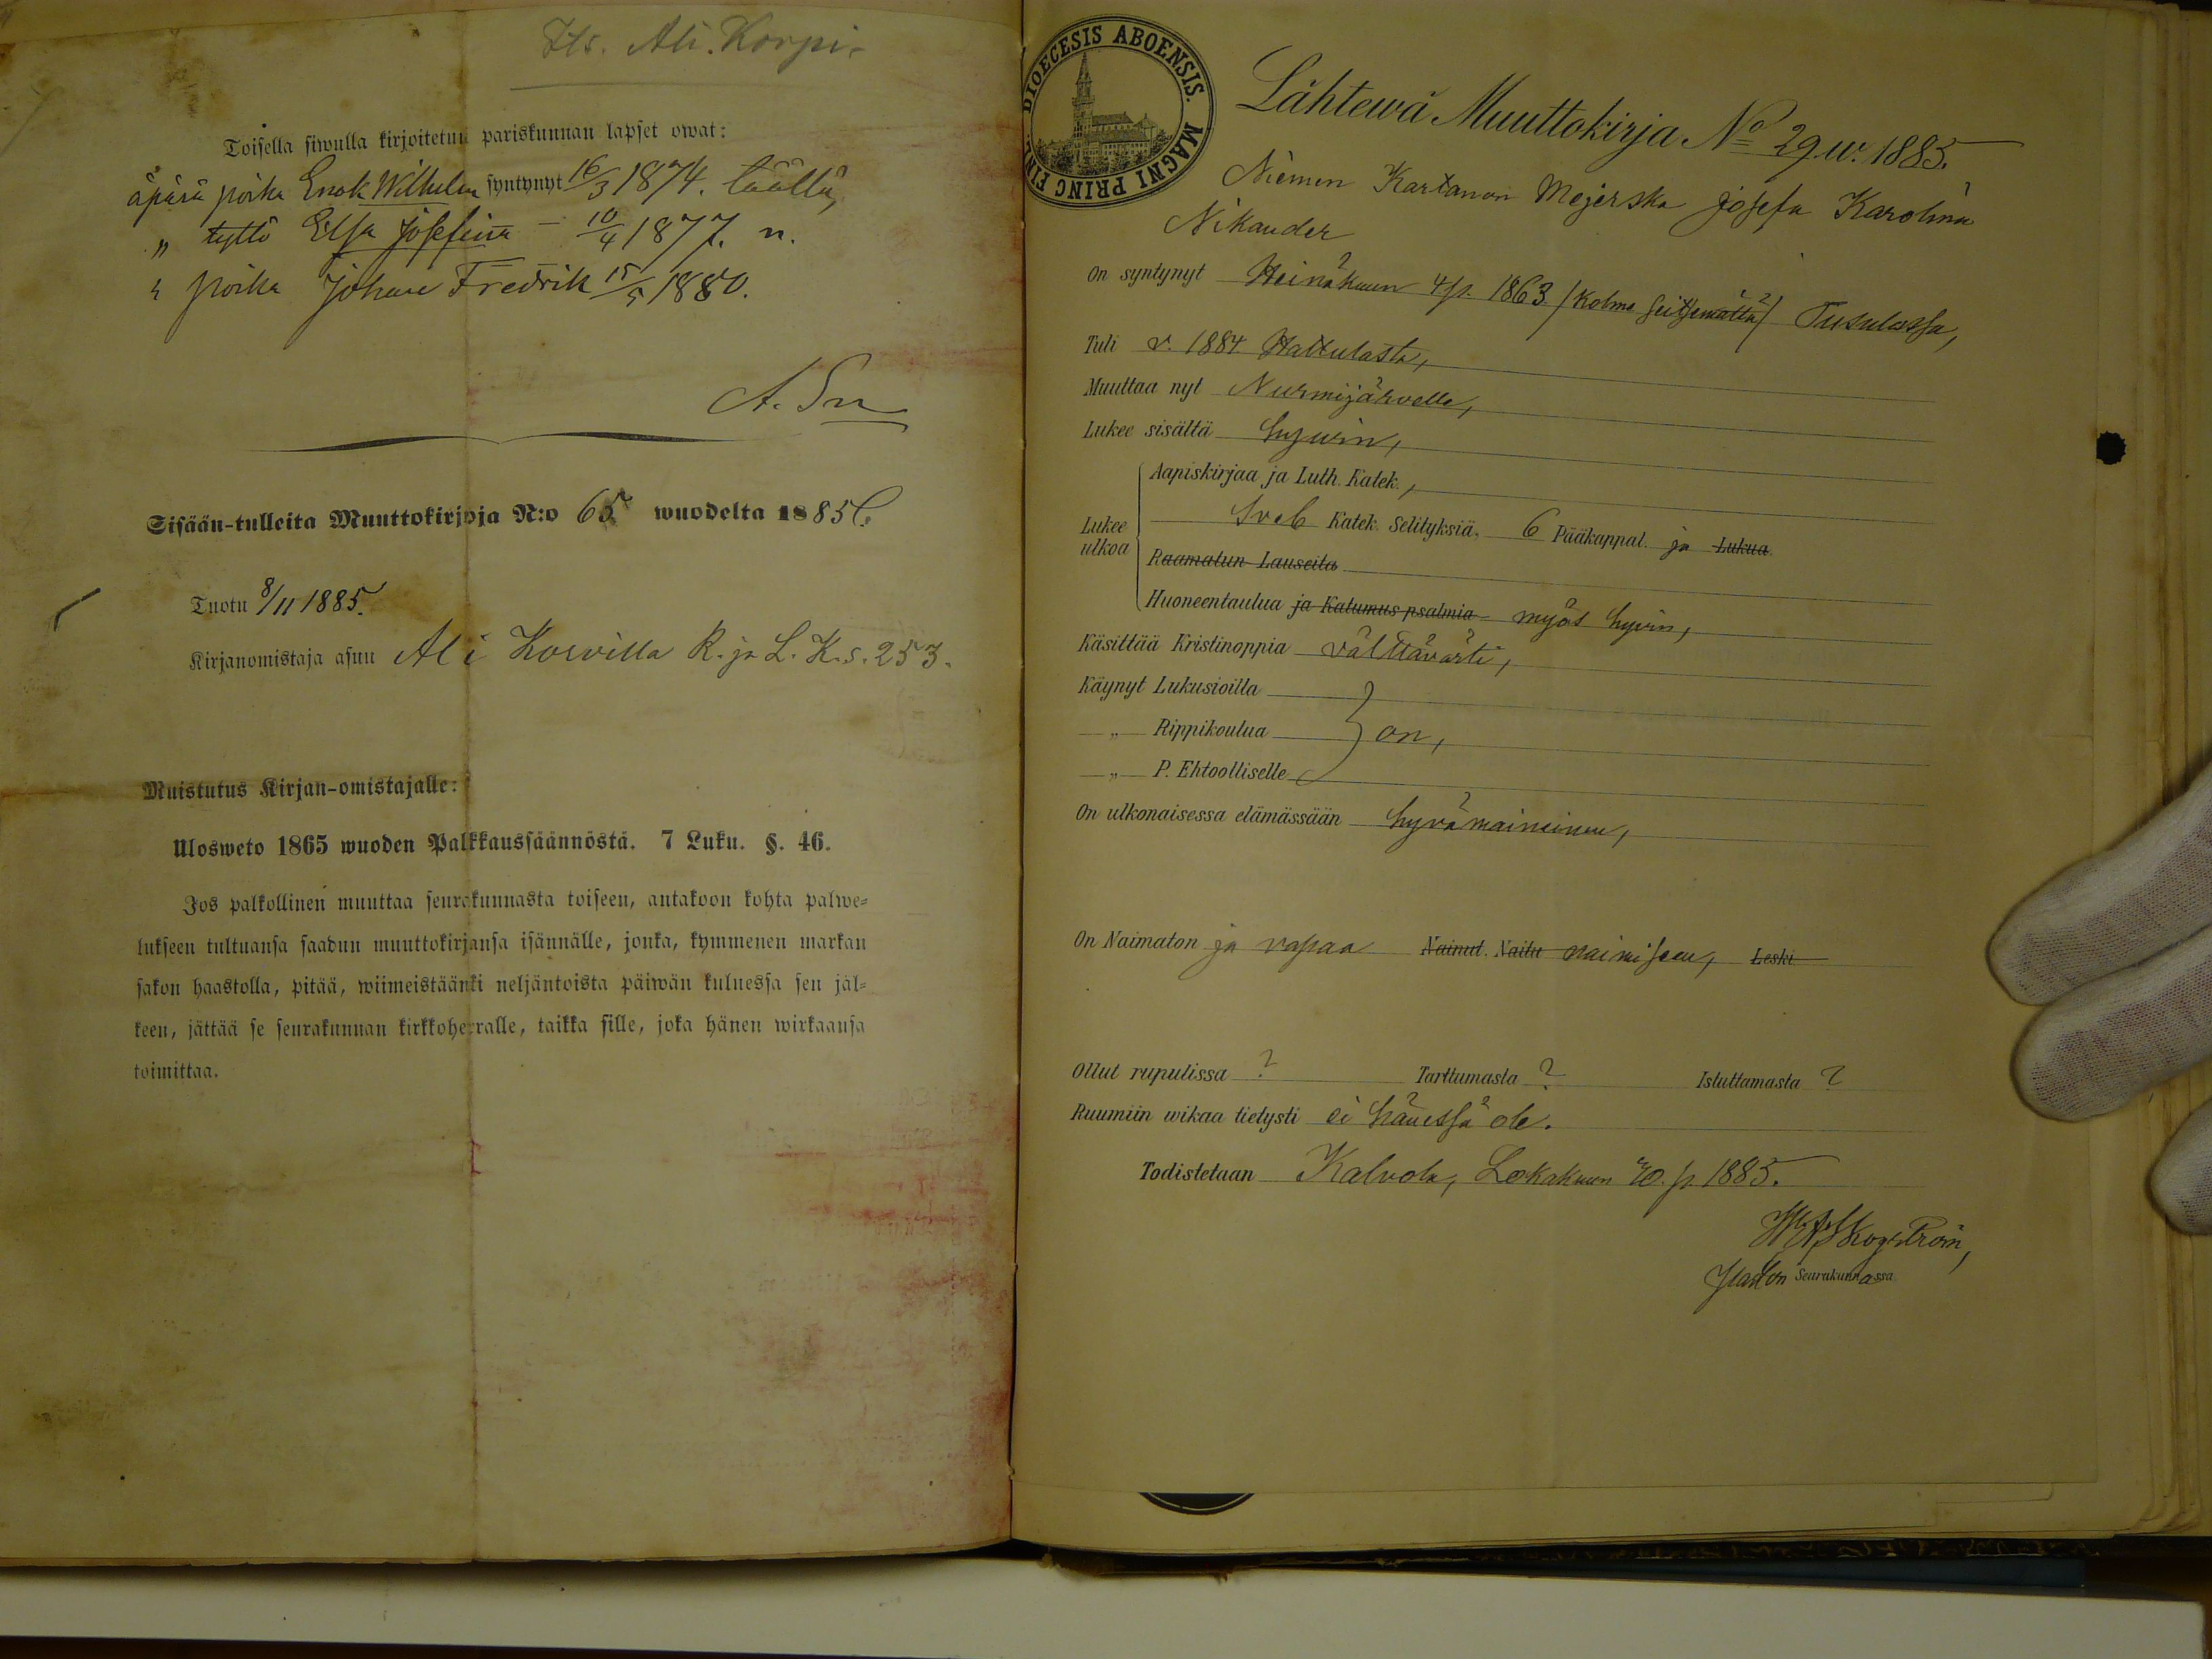 Its. Ali. Korpi.
Toisella siwulla kirjoitetun pariskunnan lapset owat:
äpärä poika Enok Wilhelm syntynyt 16/3 1874. täällä,
„ tyttö Elsa Josefina – 10/4 1877. n.
„ poika Johan Fredrik 15/5 1880.
Sisään-tulleita Muuttokirjoja N:o 65 wuodelta 1885
Tuotu 8/11 1885.
Kirjanomistaja asuu Ali Korvilla R. ja L. K. s. 253.
Muistutus Kirjan-omistajalle:
Ulosweto 1865 wuoden Palkkaussäännöstä. 7 Luku. §. 46.
Jos palkollinen muuttaa seurakunnasta toiseen, antakoon kohta palwe-
lukseen tultuansa saadun muuttokirjansa isännälle, jonka, kymmenen markan
sakon haastolla, pitää, wiimeistäänki neljäntoista päiwän kuluessa sen jäl-
keen, jättää se seurakunnan kirkkoherralle, taikka sille, joka hänen wirkaansa
toimittaa.
DIOECESIS ABOENSIS. MAGNI PRINC FINL.
Lähtewä Muuttokirja No 29 w. 1885.
Niemen Kartanon Mejerska Josefa Karolina
Nikander
On syntynyt Heinäkuun 4 p. 1863 /Kolme seitsemättä/ Tusulassa,
Tuli v. 1884 Hattulasta,
Muuttaa nyt Nurmijärvelle,
Lukee sisältä hywin,
Aapiskirjaa ja Luth. Katek.,
Lukee ulkoa
Sveb Katek. Selityksiä, 6 Pääkappal. ja Lukua.
Raamatun Lauseita
Huoneentaulua ja Katumus psalmia myös hywin,
Käsittää Kristinoppia välttävästi,
Käynyt Lukusioilla
„ Rippikoulua } on,
„ P. Ehtoolliselle
On ulkonaisessa elämässään hyvämaineinen,
On Naimaton ja vapaa Nainut. Naitu naimiseen, Leski
Ollut rupulissa ? Tarttumasta ? Istuttamasta ?
Ruumiin wikaa tietysti ei hänessä ole.
Todistetaan Kalvola, Lokakuun 20. p. 1885.
Skogström,
Seurakunnassa.